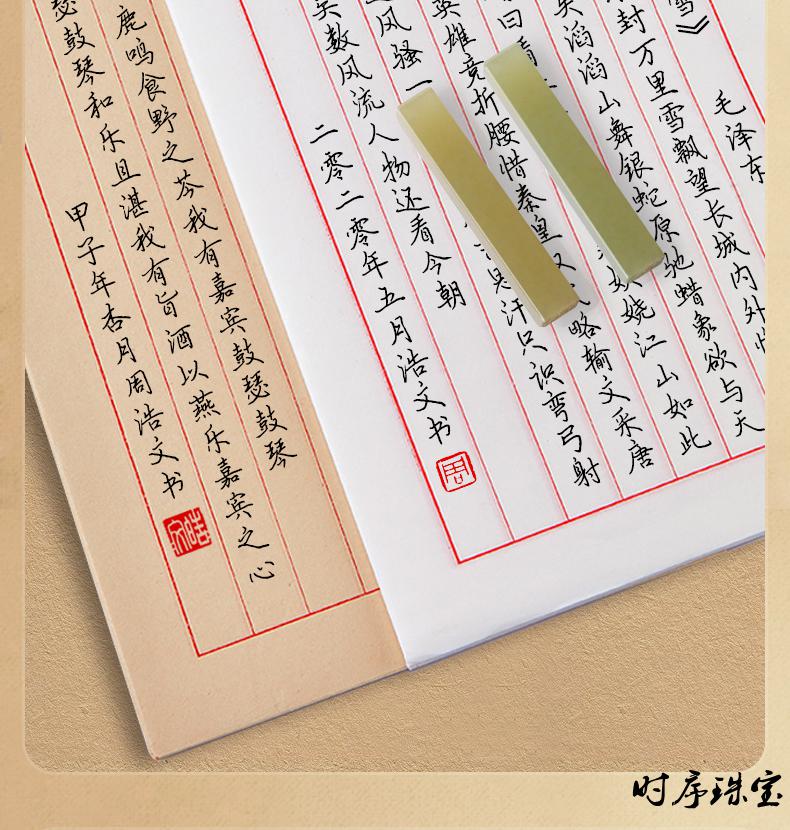 雪》 毛泽东
封万里雪飘望长城内外
滔滔山舞银蛇原驰蜡象欲与天
曰看 娆江山如此
英雄竞折腰惜秦皇 略输文采唐
风骚一 汗只识弯弓射
数风流人物还看今朝
二零二零年五月浩文书
周
鹿鸣食野之芩我有嘉宾鼓瑟鼓琴
瑟鼓琴和乐且湛我有旨酒以燕乐嘉宾之心
甲子年杏月周浩文书
浩文
时序珠宝